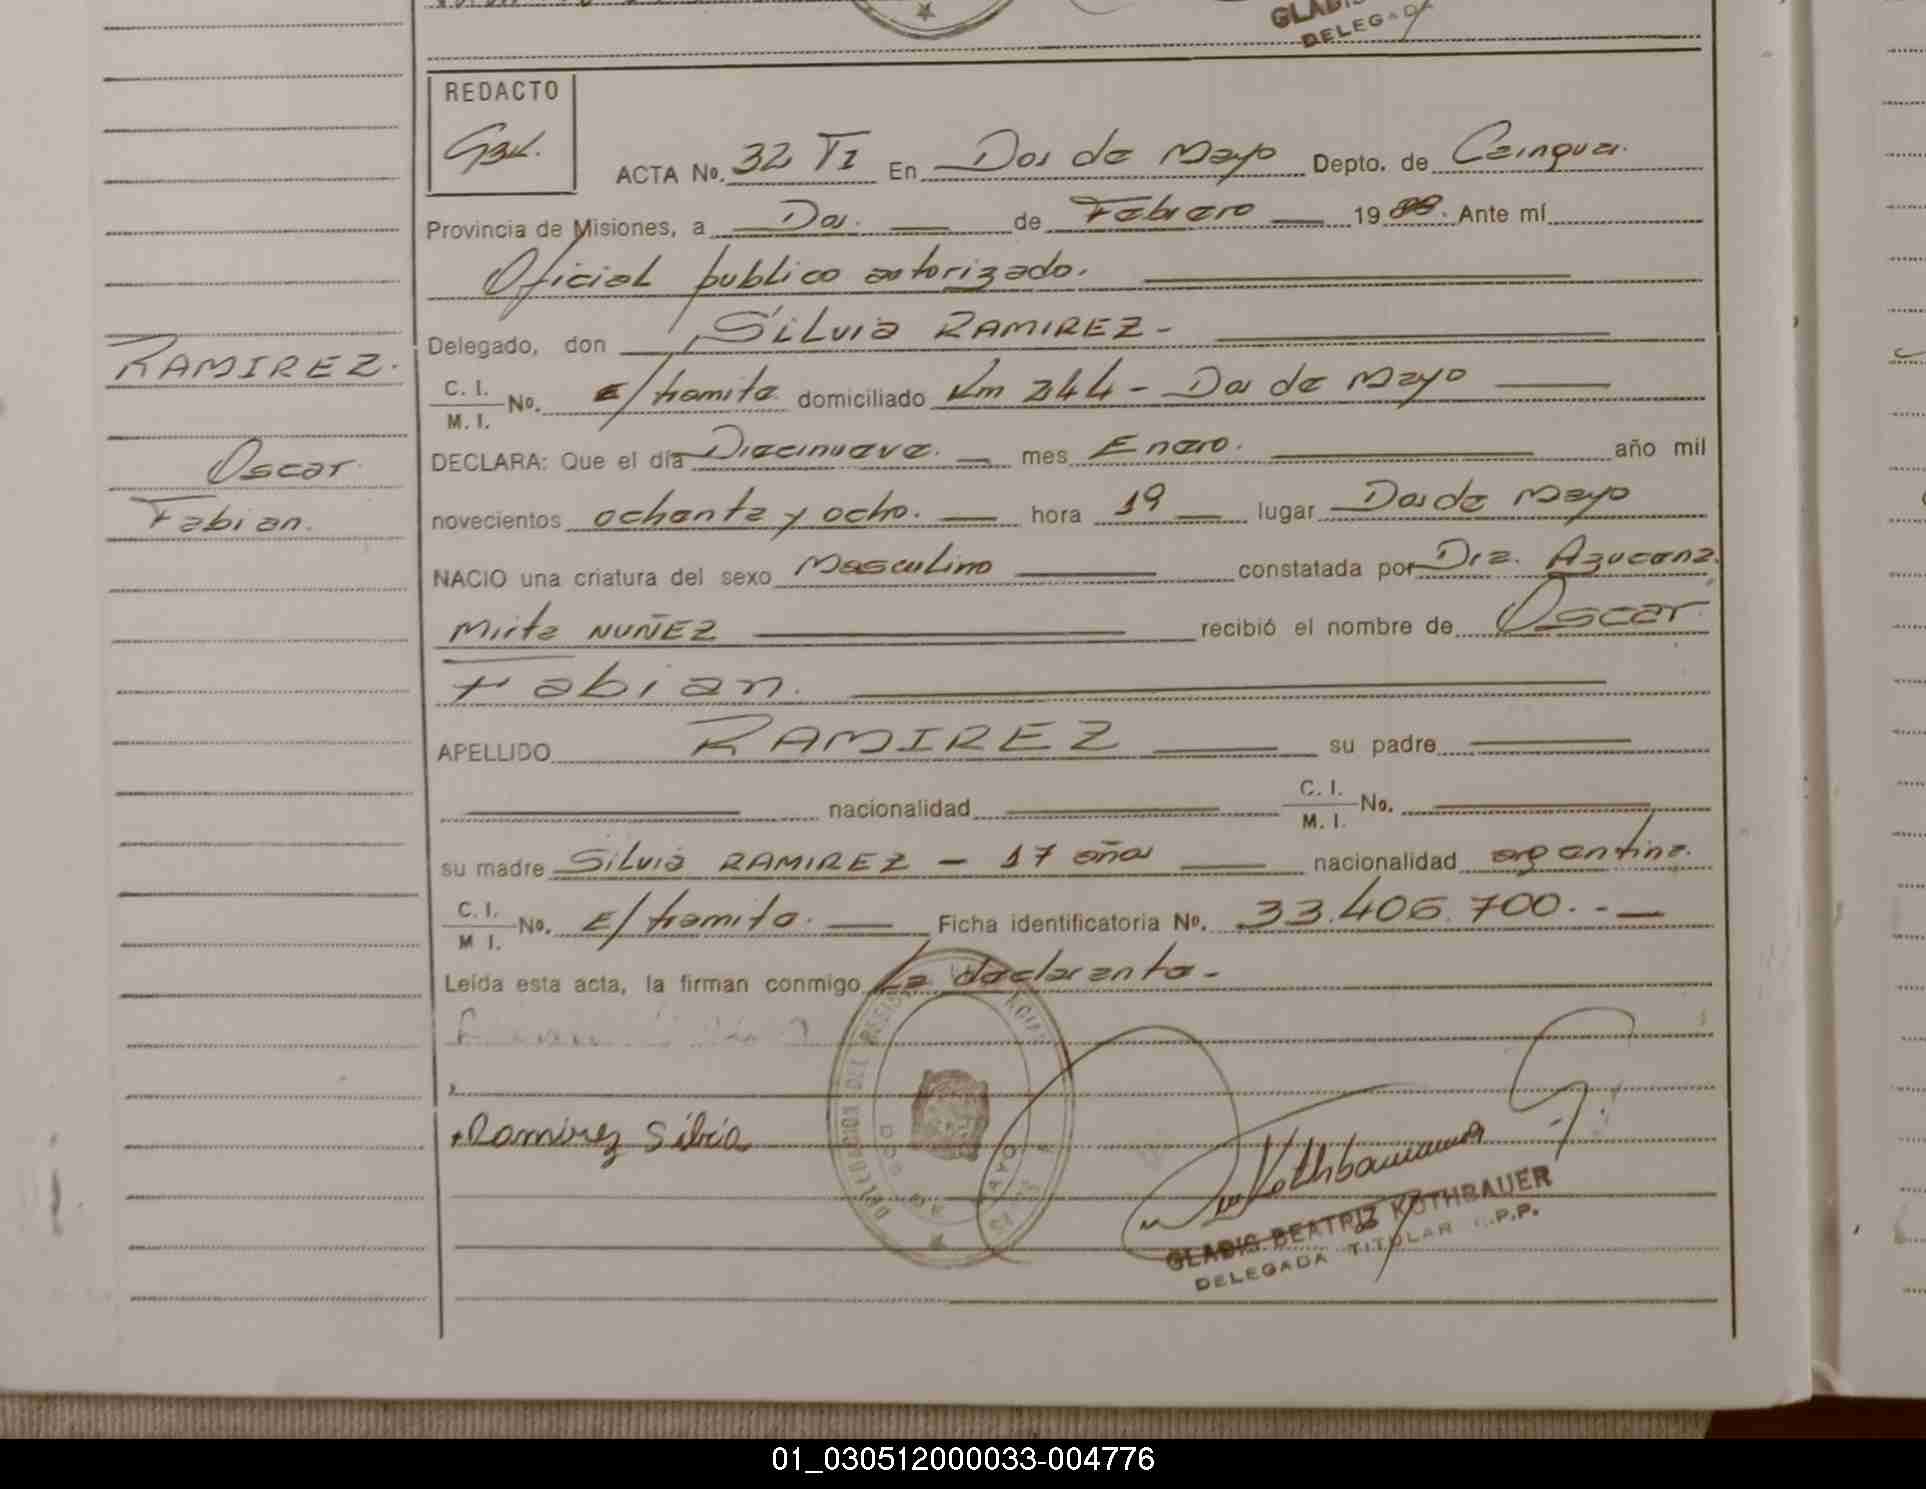 GLADIS
DELEGADA
REDACTO
GBK.
ACTA No. 32 TI En Dos de Mayo Depto. de Cainguas.
Provincia de Misiones, a Dos. de Febrero 19 Ante mí
Oficial publico autorizado.
Delegado, don Silvia RAMIREZ-
C. I.
M. I. No. E/tramite domiciliado Km 244 - Dos de Mayo
DECLARA: Que el día Diecinueve. mes Enero. año mil
novecientos ochenta y ocho. hora 19 lugar Dos de Mayo
NACIO una criatura del sexo Masculino constatada por Dra. Azucena
Mirta NUÑEZ recibió el nombre de Oscar
Fabian.
APELLIDO RAMIREZ su padre
nacionalidad C. I.
M. I. No.
su madre Silvia RAMIREZ - 17 años nacionalidad argentina.
C. I.
M I. No. E/tramite. Ficha identificatoria No. 33.406.700.-
Leída esta acta, la firman conmigo La declarante-
Ramirez Silvia
Kothbauer
GLADIS BEATRIZ KOTHBAUER
DELEGADA TITULAR R.P.P.
DELEGACION DEL REGISTRO
DOS DE MAYO
RAMIREZ.
Oscar
Fabian.
01_030512000033-004776